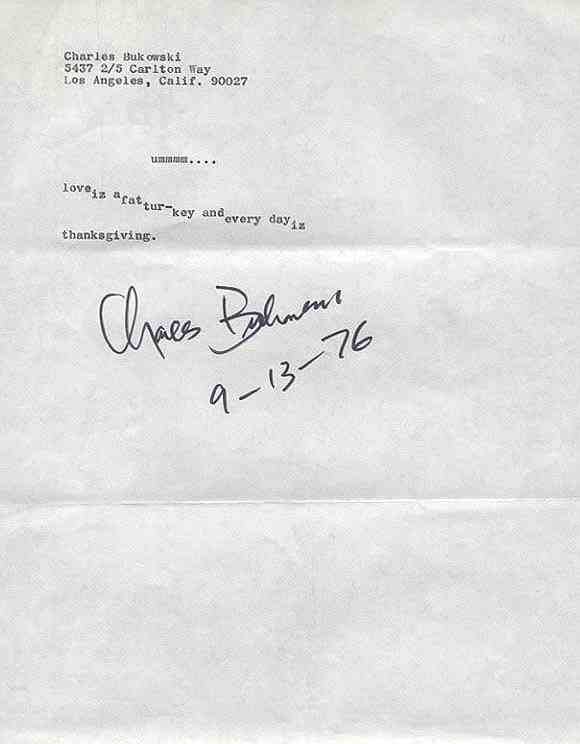 Charles Bukowski
5437 2/5 Carlton Way
Los Angeles, Calif. 90027
ummmm....
love iz a fat tur-key and every day iz
thanksgiving.
Charles Bukowski
9-13-76